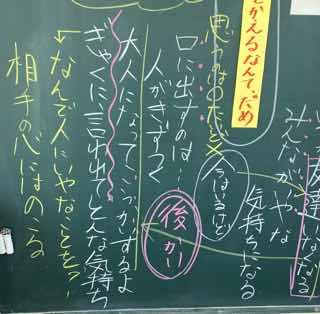 友達いなくなる
みんながいやな
気持ちになる
今はいるけど
後かい
とかえるなんて、だめ
思うのは〇だと
口に出すのは…
人がきずつく
大人になって
かするよ
ぎゃくに言われてどんな気持ち
←なんで人にいやなことを？！
相手の心にはのこる